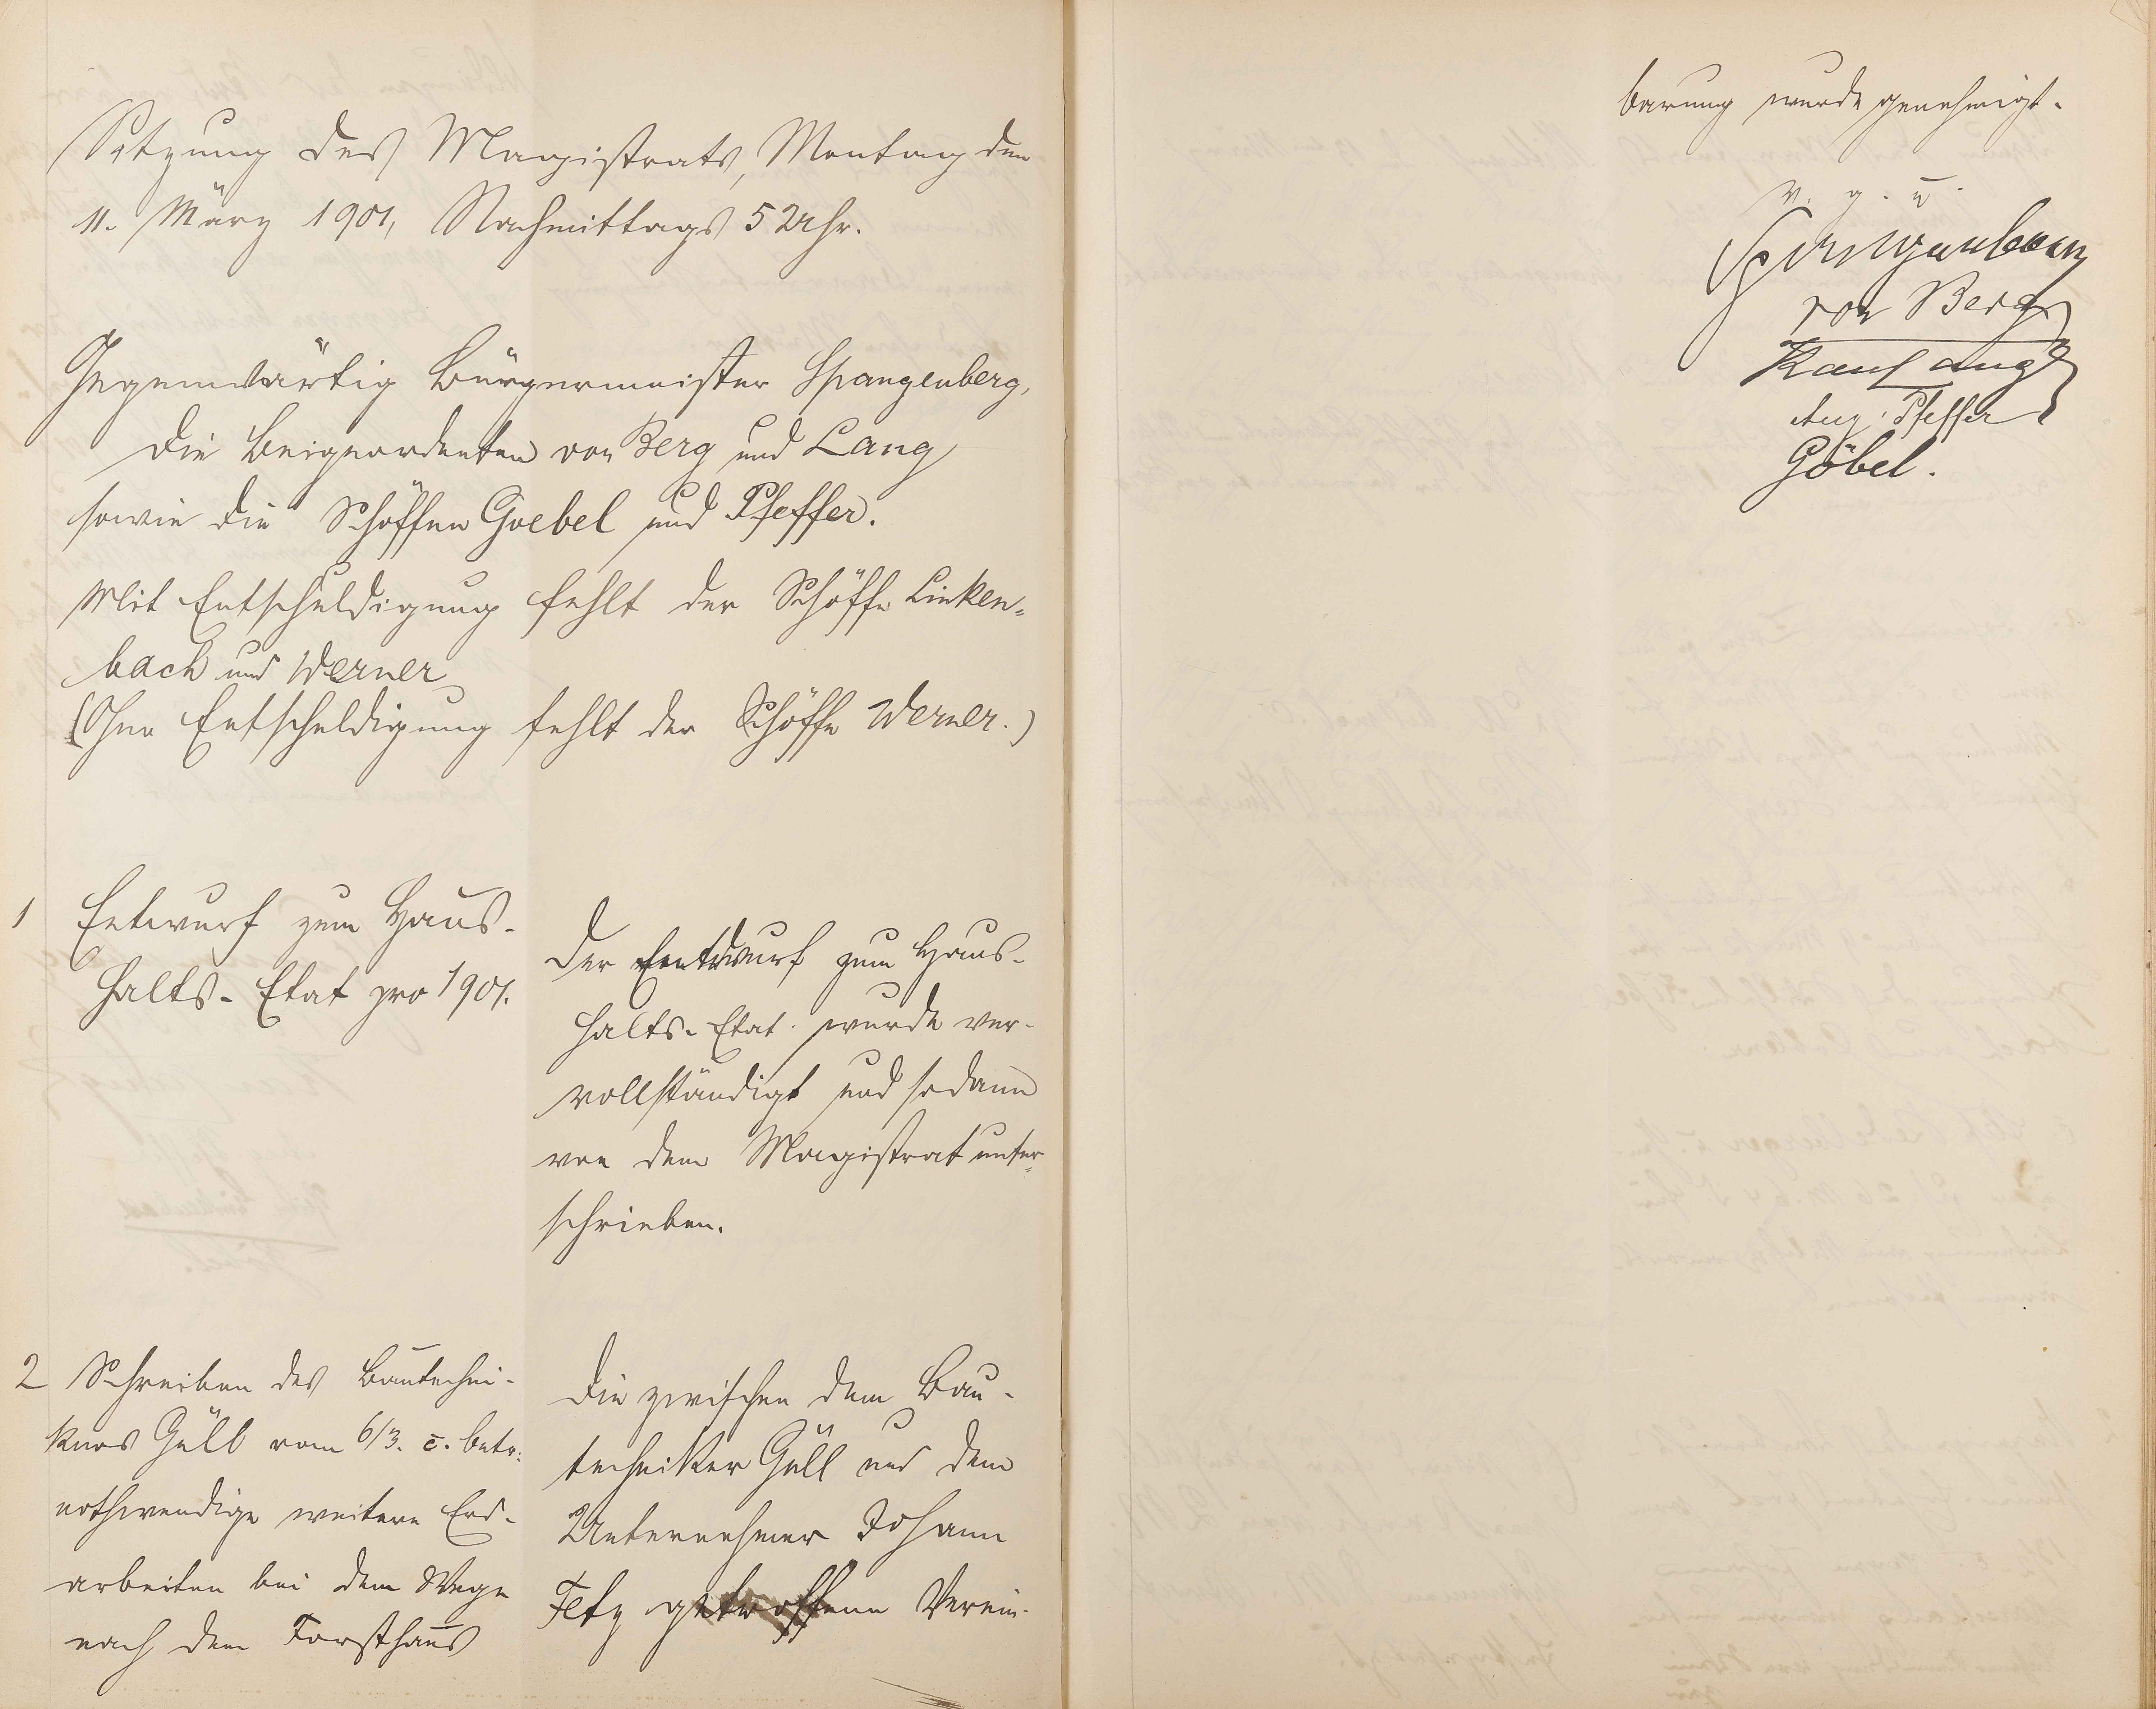 Sitzung des Magistrats, Montag den
11. März 1901, Nachmittags 5 Uhr.
Gegenwärtig Bürgermeister Spangenberg,
die Beigeordneten von Berg und Lang
sowie die Schöffen Goebel und Pfeffer.
Mit Entschuldigung fehlt der Schöffe Linken-
bach und Werner
(Ohne Entschuldigung fehlt der Schöffe Werner.)
1 Entwurf zum Haus-
halts-Etat pro 1901.
Der Entwurf zum Haus-
halts-Etat wurde ver-
vollständigt und sodann
von dem Magistrat unter-
schrieben.
2 Schreiben des Bautechni-
kers Güll vom 6/3. c. betr.
nothwendige weitere Erd-
arbeiten bei dem Wege
nach dem Forsthaus
Die zwischen dem Bau-
techniker Güll und dem
Unternehmer Johann
Fetz getroffene Verein-
barung wurde genehmigt.
v. g. u.
Spangenberg
von Berg
Karl Lang
Aug. Pfeffer
Göbel.